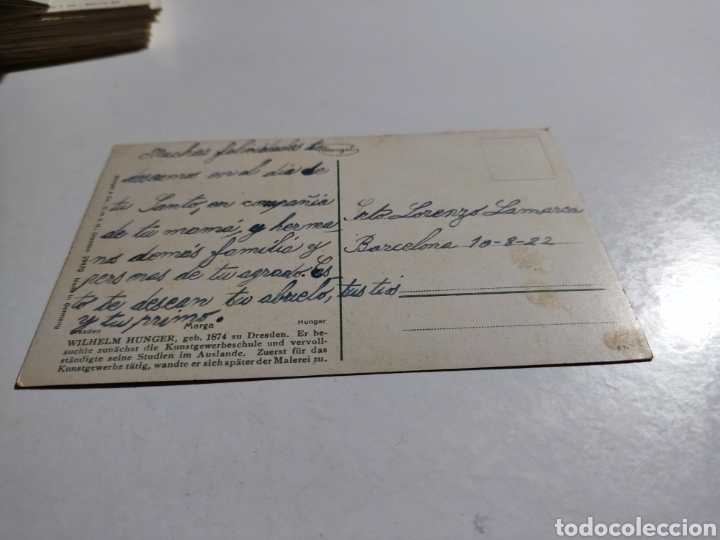 Muchas felicidades te
deseamos en el día de
tu Santo, en compañia
de tu mamá, y herma
nos demás familia y
personas de tu agrado. Es
to te desean tu abuelo, tus tios
y tu primo.
Srto Lorenzo Lamarca
Barcelona 10-8-22
Stengel
Dresden Marga Hunger
WILHELM HUNGER, geb. 1874 zu Dresden. Er be-
suchte zunächst die Kunstgewerbeschule und vervoll-
ständigte seine Studien im Auslande. Zuerst für das
Kunstgewerbe tätig, wandte er sich später der Malerei zu.
Made in Germany
todocoleccion